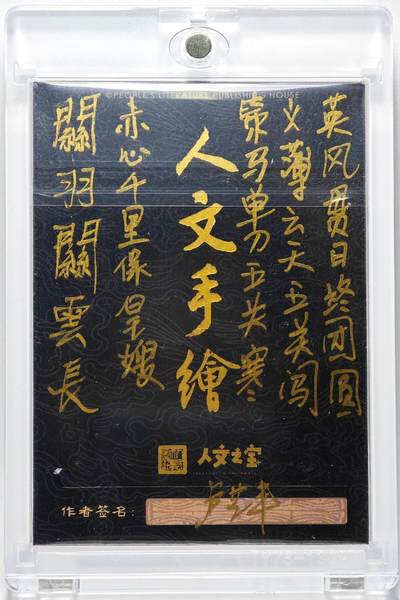 ©PEOPLE'S LITERATURE PUBLISHING HOUSE
英风贯日终团圆
义薄云天五关闯
策马单刀五关寒
人文手繪
赤心千里保皇嫂
關羽關雲長
人文之宝
作者签名：